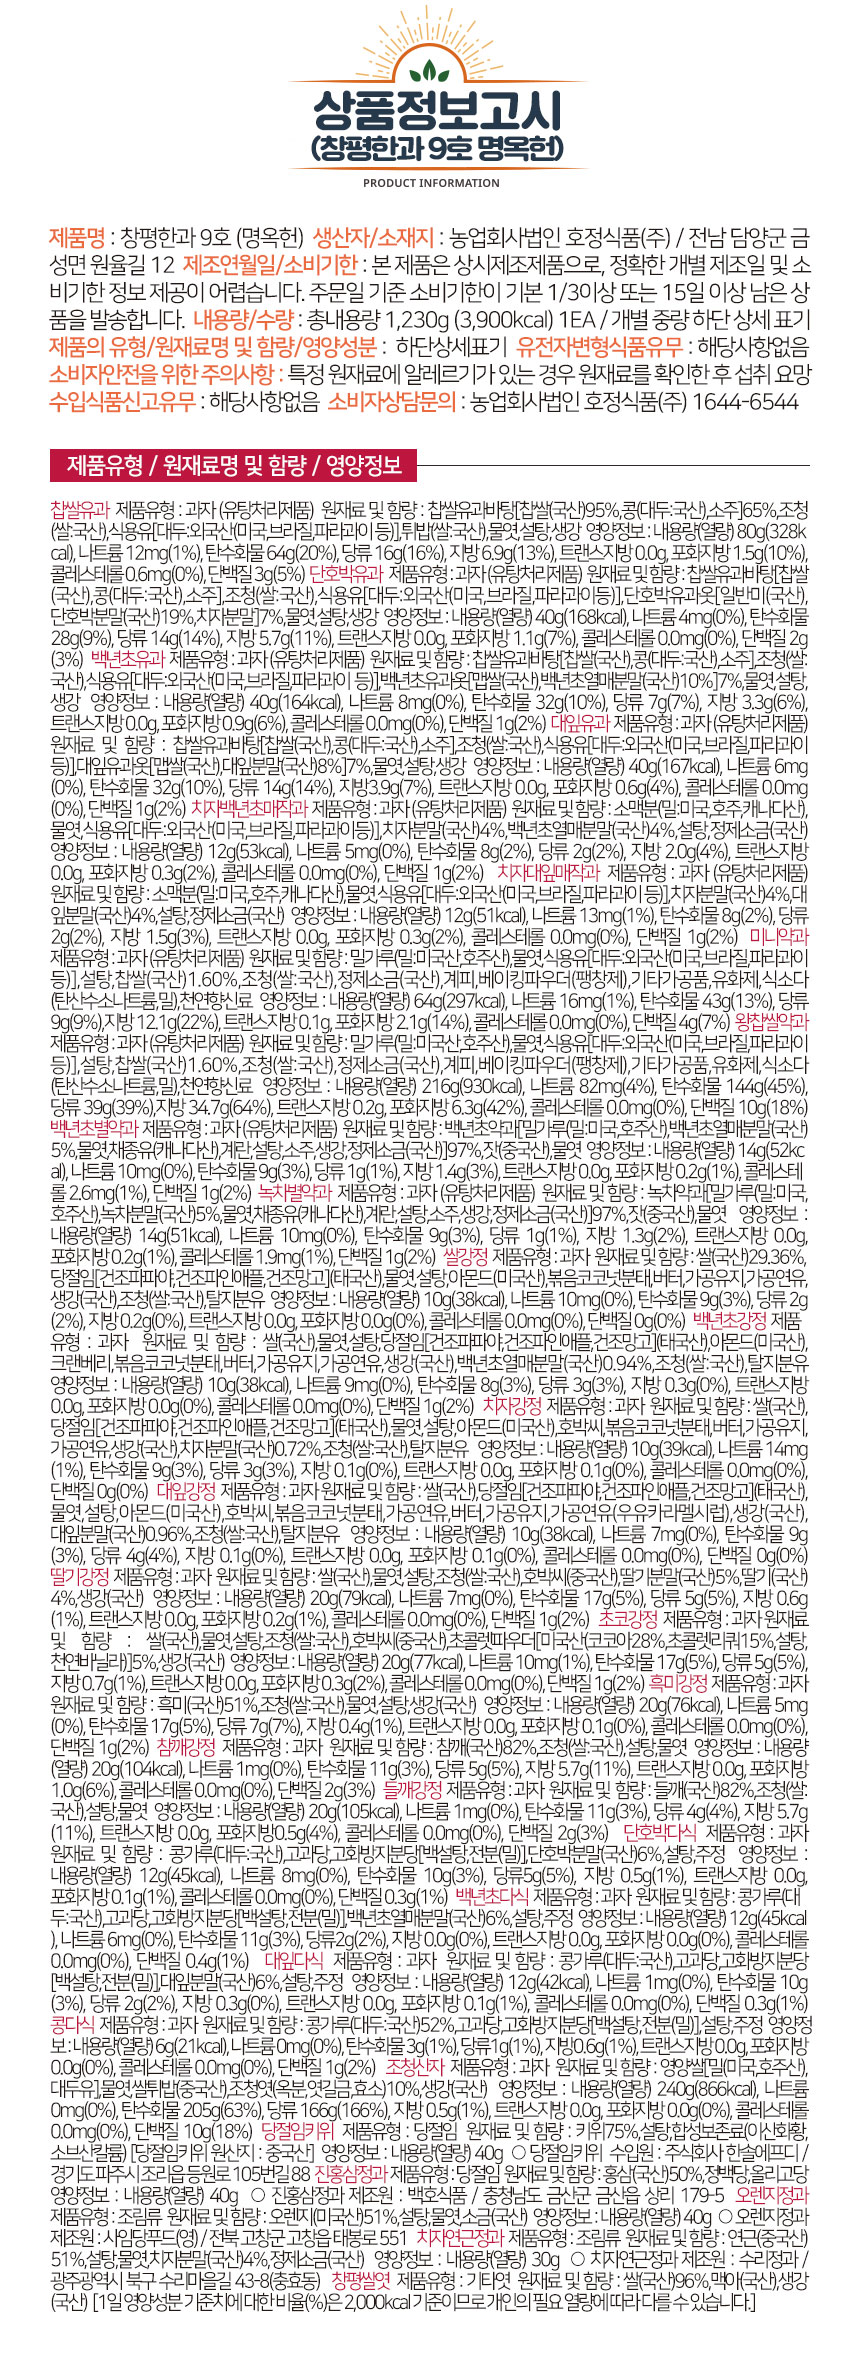 상품정보고시
(창평한과 9호 명옥헌)
PRODUCT INFORMATION
제품명 : 창평한과 9호 (명옥헌) 생산자/소재지 : 농업회사법인 호정식품(주) / 전남 담양군 금
성면 원율길 12 제조연월일/소비기한 : 본 제품은 상시제조제품으로, 정확한 개별 제조일 및 소
비기한 정보 제공이 어렵습니다. 주문일 기준 소비기한이 기본 1/3이상 또는 15일 이상 남은 상
품을 발송합니다. 내용량/수량 : 총내용량 1,230g (3,900kcal) 1EA / 개별 중량 하단 상세 표기
제품의 유형/원재료명 및 함량/영양성분 : 하단상세표기 유전자변형식품유무 : 해당사항없음
소비자안전을 위한 주의사항 : 특정 원재료에 알레르기가 있는 경우 원재료를 확인한 후 섭취 요망
수입식품신고유무 : 해당사항없음 소비자상담문의 : 농업회사법인 호정식품(주) 1644-6544
제품유형 / 원재료명 및 함량 / 영양정보
찹쌀유과 제품유형 : 과자 (유탕처리제품) 원재료 및 함량 : 찹쌀유과바탕[찹쌀(국산)95%,콩(대두:국산),소주]65%,조청
(쌀:국산),식용유[대두:외국산(미국,브라질,파라과이 등)],튀밥(쌀:국산),물엿,설탕,생강 영양정보 : 내용량(열량) 80g(328k
cal), 나트륨 12mg(1%), 탄수화물 64g(20%), 당류 16g(16%), 지방 6.9g(13%), 트랜스지방 0.0g, 포화지방 1.5g(10%),
콜레스테롤 0.6mg(0%), 단백질 3g(5%) 단호박유과 제품유형 : 과자 (유탕처리제품) 원재료 및 함량 : 찹쌀유과바탕[찹쌀
(국산),콩(대두:국산),소주],조청(쌀:국산),식용유[대두:외국산(미국,브라질,파라과이등)],단호박유과옷[일반미(국산),
단호박분말(국산)19%,치자분말]7%,물엿,설탕,생강 영양정보 : 내용량(열량) 40g(168kcal), 나트륨 4mg(0%), 탄수화물
28g(9%), 당류 14g(14%), 지방 5.7g(11%), 트랜스지방 0.0g, 포화지방 1.1g(7%), 콜레스테롤 0.0mg(0%), 단백질 2g
(3%) 백년초유과 제품유형 : 과자 (유탕처리제품) 원재료 및 함량 : 찹쌀유과바탕[찹쌀(국산),콩(대두:국산),소주],조청(쌀:
국산),식용유[대두:외국산(미국,브라질,파라과이 등)],백년초유과옷[맵쌀(국산),백년초열매분말(국산)10%]7%,물엿,설탕,
생강 영양정보 : 내용량(열량) 40g(164kcal), 나트륨 8mg(0%), 탄수화물 32g(10%), 당류 7g(7%), 지방 3.3g(6%),
트랜스지방 0.0g, 포화지방 0.9g(6%), 콜레스테롤 0.0mg(0%), 단백질 1g(2%) 대잎유과 제품유형 : 과자 (유탕처리제품)
원재료 및 함량 : 찹쌀유과바탕[찹쌀(국산),콩(대두:국산),소주],조청(쌀:국산),식용유[대두:외국산(미국,브라질,파라과이
등)],대잎유과옷[맵쌀(국산),대잎분말(국산)8%]7%,물엿,설탕,생강 영양정보 : 내용량(열량) 40g(167kcal), 나트륨 6mg
(0%), 탄수화물 32g(10%), 당류 14g(14%), 지방3.9g(7%), 트랜스지방 0.0g, 포화지방 0.6g(4%), 콜레스테롤 0.0mg
(0%), 단백질 1g(2%) 치자백년초매작과 제품유형 : 과자 (유탕처리제품) 원재료 및 함량 : 소맥분(밀:미국,호주,캐나다산),
물엿,식용유[대두:외국산(미국,브라질,파라과이등)],치자분말(국산)4%,백년초열매분말(국산)4%,설탕,정제소금(국산)
영양정보 : 내용량(열량) 12g(53kcal), 나트륨 5mg(0%), 탄수화물 8g(2%), 당류 2g(2%), 지방 2.0g(4%), 트랜스지방
0.0g, 포화지방 0.3g(2%), 콜레스테롤 0.0mg(0%), 단백질 1g(2%) 치자대잎매작과 제품유형 : 과자 (유탕처리제품)
원재료 및 함량 : 소맥분(밀:미국,호주,캐나다산),물엿,식용유[대두:외국산(미국,브라질,파라과이 등)],치자분말(국산)4%,대
잎분말(국산)4%,설탕,정제소금(국산) 영양정보 : 내용량(열량) 12g(51kcal), 나트륨 13mg(1%), 탄수화물 8g(2%), 당류
2g(2%), 지방 1.5g(3%), 트랜스지방 0.0g, 포화지방 0.3g(2%), 콜레스테롤 0.0mg(0%), 단백질 1g(2%) 미니약과
제품유형 : 과자 (유탕처리제품) 원재료 및 함량 : 밀가루(밀:미국산,호주산),물엿,식용유[대두:외국산(미국,브라질,파라과이
등)],설탕,찹쌀(국산)1.60%,조청(쌀:국산),정제소금(국산),계피,베이킹파우더(팽창제),기타가공품,유화제,식소다
(탄산수소나트륨,밀),천연향신료 영양정보 : 내용량(열량) 64g(297kcal), 나트륨 16mg(1%), 탄수화물 43g(13%), 당류
9g(9%),지방 12.1g(22%), 트랜스지방 0.1g, 포화지방 2.1g(14%), 콜레스테롤 0.0mg(0%), 단백질 4g(7%) 왕찹쌀약과
제품유형 : 과자 (유탕처리제품) 원재료 및 함량 : 밀가루(밀:미국산,호주산),물엿,식용유[대두:외국산(미국,브라질,파라과이
등)],설탕,찹쌀(국산)1.60%,조청(쌀:국산),정제소금(국산),계피,베이킹파우더(팽창제),기타가공품,유화제,식소다
(탄산수소나트륨,밀),천연향신료 영양정보 : 내용량(열량) 216g(930kcal), 나트륨 82mg(4%), 탄수화물 144g(45%),
당류 39g(39%),지방 34.7g(64%), 트랜스지방 0.2g, 포화지방 6.3g(42%), 콜레스테롤 0.0mg(0%), 단백질 10g(18%)
백년초별약과 제품유형 : 과자 (유탕처리제품) 원재료 및 함량 : 백년초약과[밀가루(밀:미국,호주산),백년초열매분말(국산)
5%,물엿,채종유(캐나다산),계란,설탕,소주,생강,정제소금(국산)]97%,잣(중국산),물엿 영양정보 : 내용량(열량) 14g(52kc
al), 나트륨 10mg(0%), 탄수화물 9g(3%), 당류 1g(1%), 지방 1.4g(3%), 트랜스지방 0.0g, 포화지방 0.2g(1%), 콜레스테
롤 2.6mg(1%), 단백질 1g(2%) 녹차별약과 제품유형 : 과자 (유탕처리제품) 원재료 및 함량 : 녹차약과[밀가루(밀:미국,
호주산),녹차분말(국산)5%,물엿,채종유(캐나다산),계란,설탕,소주,생강,정제소금(국산)]97%,잣(중국산),물엿 영양정보 :
내용량(열량) 14g(51kcal), 나트륨 10mg(0%), 탄수화물 9g(3%), 당류 1g(1%), 지방 1.3g(2%), 트랜스지방 0.0g,
포화지방 0.2g(1%), 콜레스테롤 1.9mg(1%), 단백질 1g(2%) 쌀강정 제품유형 : 과자 원재료 및 함량 : 쌀(국산)29.36%,
당절임[건조파파야,건조파인애플,건조망고](태국산),물엿,설탕,아몬드(미국산),볶음코코넛분태,버터,가공유지,가공연유,
생강(국산),조청(쌀:국산),탈지분유 영양정보 : 내용량(열량) 10g(38kcal), 나트륨 10mg(0%), 탄수화물 9g(3%), 당류 2g
(2%), 지방 0.2g(0%), 트랜스지방 0.0g, 포화지방 0.0g(0%), 콜레스테롤 0.0mg(0%), 단백질 0g(0%) 백년초강정 제품
유형 : 과자 원재료 및 함량 : 쌀(국산),물엿,설탕,당절임[건조파파야,건조파인애플,건조망고](태국산),아몬드(미국산),
크랜베리,볶음코코넛분태,버터,가공유지,가공연유,생강(국산),백년초열매분말(국산)0.94%,조청(쌀:국산),탈지분유
영양정보 : 내용량(열량) 10g(38kcal), 나트륨 9mg(0%), 탄수화물 8g(3%), 당류 3g(3%), 지방 0.3g(0%), 트랜스지방
0.0g, 포화지방 0.0g(0%), 콜레스테롤 0.0mg(0%), 단백질 1g(2%) 치자강정 제품유형 : 과자 원재료 및 함량 : 쌀(국산),
당절임[건조파파야,건조파인애플,건조망고](태국산),물엿,설탕,아몬드(미국산),호박씨,볶음코코넛분태,버터,가공유지,
가공연유,생강(국산),치자분말(국산)0.72%,조청(쌀:국산),탈지분유 영양정보 : 내용량(열량) 10g(39kcal), 나트륨 14mg
(1%), 탄수화물 9g(3%), 당류 3g(3%), 지방 0.1g(0%), 트랜스지방 0.0g, 포화지방 0.1g(0%), 콜레스테롤 0.0mg(0%),
단백질 0g(0%) 대잎강정 제품유형 : 과자 원재료 및 함량 : 쌀(국산),당절임[건조파파야,건조파인애플,건조망고](태국산),
물엿,설탕,아몬드(미국산),호박씨,볶음코코넛분태,가공연유,버터,가공유지,가공연유(우유카라멜시럽),생강(국산),
대잎분말(국산)0.96%,조청(쌀:국산),탈지분유 영양정보 : 내용량(열량) 10g(38kcal), 나트륨 7mg(0%), 탄수화물 9g
(3%), 당류 4g(4%), 지방 0.1g(0%), 트랜스지방 0.0g, 포화지방 0.1g(0%), 콜레스테롤 0.0mg(0%), 단백질 0g(0%)
딸기강정 제품유형 : 과자 원재료 및 함량 : 쌀(국산),물엿,설탕,조청(쌀:국산),호박씨(중국산),딸기분말(국산)5%,딸기(국산)
4%,생강(국산) 영양정보 : 내용량(열량) 20g(79kcal), 나트륨 7mg(0%), 탄수화물 17g(5%), 당류 5g(5%), 지방 0.6g
(1%), 트랜스지방 0.0g, 포화지방 0.2g(1%), 콜레스테롤 0.0mg(0%), 단백질 1g(2%) 초코강정 제품유형 : 과자 원재료
및 함량 : 쌀(국산),물엿,설탕,조청(쌀:국산),호박씨(중국산),초콜렛파우더[미국산(코코아28%,초콜렛리쿼15%,설탕,
천연바닐라)]5%,생강(국산) 영양정보 : 내용량(열량) 20g(77kcal), 나트륨 10mg(1%), 탄수화물 17g(5%), 당류 5g(5%),
지방 0.7g(1%), 트랜스지방 0.0g, 포화지방 0.3g(2%), 콜레스테롤 0.0mg(0%), 단백질 1g(2%) 흑미강정 제품유형 : 과자
원재료 및 함량 : 흑미(국산)51%,조청(쌀:국산),물엿,설탕,생강(국산) 영양정보 : 내용량(열량) 20g(76kcal), 나트륨 5mg
(0%), 탄수화물 17g(5%), 당류 7g(7%), 지방 0.4g(1%), 트랜스지방 0.0g, 포화지방 0.1g(0%), 콜레스테롤 0.0mg(0%),
단백질 1g(2%) 참깨강정 제품유형 : 과자 원재료 및 함량 : 참깨(국산)82%,조청(쌀:국산),설탕,물엿 영양정보 : 내용량
(열량) 20g(104kcal), 나트륨 1mg(0%), 탄수화물 11g(3%), 당류 5g(5%), 지방 5.7g(11%), 트랜스지방 0.0g, 포화지방
1.0g(6%), 콜레스테롤 0.0mg(0%), 단백질 2g(3%) 들깨강정 제품유형 : 과자 원재료 및 함량 : 들깨(국산)82%,조청(쌀:
국산),설탕,물엿 영양정보 : 내용량(열량) 20g(105kcal), 나트륨 1mg(0%), 탄수화물 11g(3%), 당류 4g(4%), 지방 5.7g
(11%), 트랜스지방 0.0g, 포화지방0.5g(4%), 콜레스테롤 0.0mg(0%), 단백질 2g(3%) 단호박다식 제품유형 : 과자
원재료 및 함량 : 콩가루(대두:국산),고과당,고화방지분당[백설탕,전분(밀)],단호박분말(국산)6%,설탕,주정 영양정보 :
내용량(열량) 12g(45kcal), 나트륨 8mg(0%), 탄수화물 10g(3%), 당류5g(5%), 지방 0.5g(1%), 트랜스지방 0.0g,
포화지방 0.1g(1%), 콜레스테롤 0.0mg(0%), 단백질 0.3g(1%) 백년초다식 제품유형 : 과자 원재료 및 함량 : 콩가루(대
두:국산),고과당,고화방지분당[백설탕,전분(밀)],백년초열매분말(국산)6%,설탕,주정 영양정보 : 내용량(열량) 12g(45kcal
), 나트륨 6mg(0%), 탄수화물 11g(3%), 당류2g(2%), 지방 0.0g(0%), 트랜스지방 0.0g, 포화지방 0.0g(0%), 콜레스테롤
0.0mg(0%), 단백질 0.4g(1%) 대잎다식 제품유형 : 과자 원재료 및 함량 : 콩가루(대두:국산),고과당,고화방지분당
[백설탕,전분(밀)],대잎분말(국산)6%,설탕,주정 영양정보 : 내용량(열량) 12g(42kcal), 나트륨 1mg(0%), 탄수화물 10g
(3%), 당류 2g(2%), 지방 0.3g(0%), 트랜스지방 0.0g, 포화지방 0.1g(1%), 콜레스테롤 0.0mg(0%), 단백질 0.3g(1%)
콩다식 제품유형 : 과자 원재료 및 함량 : 콩가루(대두:국산)52%,고과당,고화방지분당[백설탕,전분(밀)],설탕,주정 영양정
보 : 내용량(열량) 6g(21kcal), 나트륨 0mg(0%), 탄수화물 3g(1%), 당류1g(1%), 지방0.6g(1%), 트랜스지방 0.0g, 포화지방
0.0g(0%), 콜레스테롤 0.0mg(0%), 단백질 1g(2%) 조청산자 제품유형 : 과자 원재료 및 함량 : 영양쌀[밀(미국,호주산),
대두유],물엿,쌀튀밥(중국산),조청엿(옥분,엿길금,효소)10%,생강(국산) 영양정보 : 내용량(열량) 240g(866kcal), 나트륨
0mg(0%), 탄수화물 205g(63%), 당류 166g(166%), 지방 0.5g(1%), 트랜스지방 0.0g, 포화지방 0.0g(0%), 콜레스테롤
0.0mg(0%), 단백질 10g(18%) 당절임키위 제품유형 : 당절임 원재료 및 함량 : 키위75%,설탕,합성보존료(이산화황,
소브산칼륨) [당절임키위 원산지 : 중국산] 영양정보 : 내용량(열량) 40g ○ 당절임키위 수입원 : 주식회사 한솔에프디 /
경기도 파주시 조리읍 등원로 105번길 88 진홍삼정과 제품유형 : 당절임 원재료 및 함량 : 홍삼(국산)50%,정백당,올리고당
영양정보 : 내용량(열량) 40g ○ 진홍삼정과 제조원 : 백호식품 / 충청남도 금산군 금산읍 상리 179-5 오렌지정과
제품유형 : 조림류 원재료 및 함량 : 오렌지(미국산)51%,설탕,물엿,소금(국산) 영양정보 : 내용량(열량) 40g ○ 오렌지정과
제조원 : 사임당푸드(영) / 전북 고창군 고창읍 태봉로 551 치자연근정과 제품유형 : 조림류 원재료 및 함량 : 연근(중국산)
51%,설탕,물엿,치자분말(국산)4%,정제소금(국산) 영양정보 : 내용량(열량) 30g ○ 치자연근정과 제조원 : 수리정과 /
광주광역시 북구 수리마을길 43-8(충효동) 창평쌀엿 제품유형 : 기타엿 원재료 및 함량 : 쌀(국산)96%,맥아(국산),생강
(국산) [1일 영양성분 기준치에 대한 비율(%)은 2,000kcal 기준이므로 개인의 필요 열량에 따라 다를 수 있습니다.]